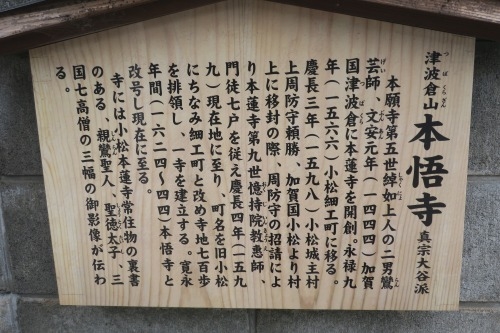 津波倉山 本悟寺 真宗大谷派
本願寺第五世綽如上人の二男鸞
芸師、文安元年（一四四四）加賀
国津波倉に本蓮寺を開創。永禄九
年（一五六六）小松細工町に移る。
慶長三年（一五九八）小松城主村
上周防守頼勝、加賀国小松より村
上に移封の際、周防守の招請によ
り本蓮寺第九世憶持院教悪師、
門徒七戸を従え慶長四年（一五九
九）現在地に至り、町名を旧小松
にちなみ細工町と改め寺地七百歩
を排領し、一寺を建立する。寛永
年間（一六二四～四四）本悟寺と
改号し現在に至る。
寺には小松本蓮寺常住物の裏書
のある、親鸞聖人、聖徳太子、三
国七高僧の三幅の御影像が伝わ
る。